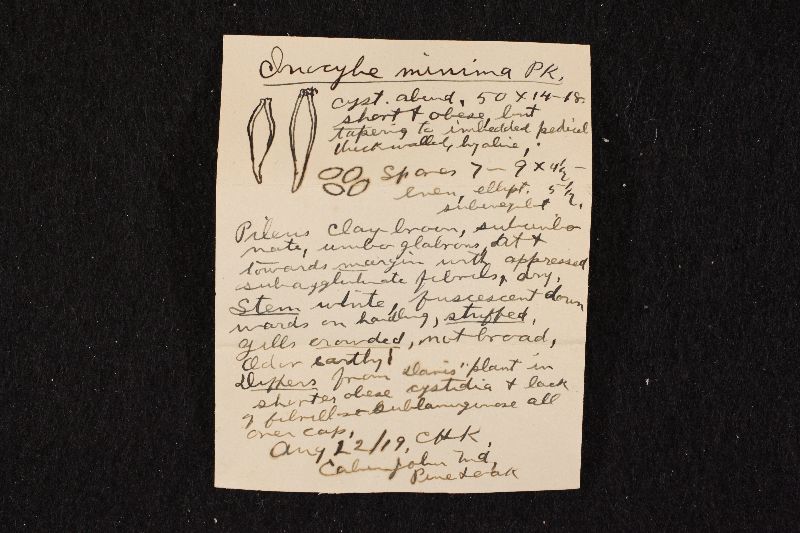 Inocybe minima PK.
cyst. abund, 50 x 14-18.
short & obese, but
tapering to imbedded pedicel
thick walled, hyaline,
Spores 7 - 9 x 4½ -
even, ellipt. 5½.
subinequilat
Pileus clay-brown, subumbo
nate, umbo glabrous, &
towards margin with appressed
subagglutinate fibrils, dry,
Stem white, fuscescent down
wards on handling, stuffed,
Gills crowded, not broad,
Odor earthy!
Differs from Davis' plant in
shorter, obese cystidia & lack
of fibrillose sublanuginose all
over cap,
Aug 22/19, CHK,
Cabin John Md,
Pine & oak